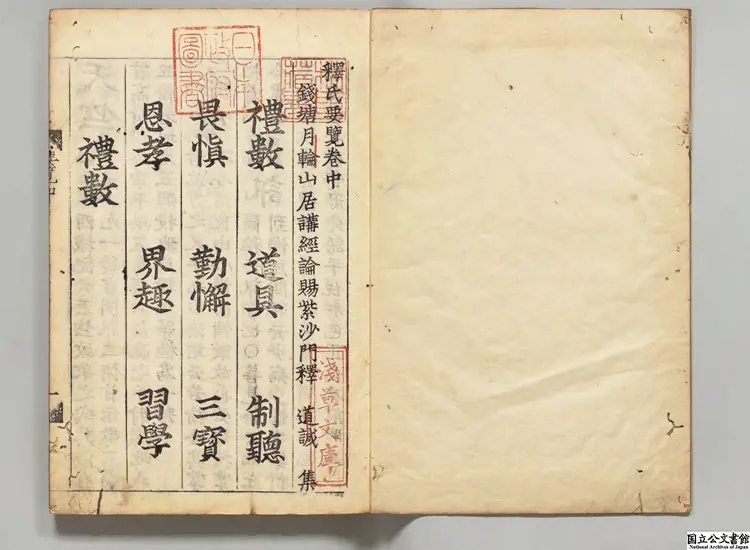 釋氏要覽卷中
錢塘月輪山居講經論賜紫沙門釋 道誠 集
禮數 道具 制聽
畏慎 勤懈 三寶
恩孝 界趣 習學
禮數
淺草文庫
国立公文書館
National Archives of Japan